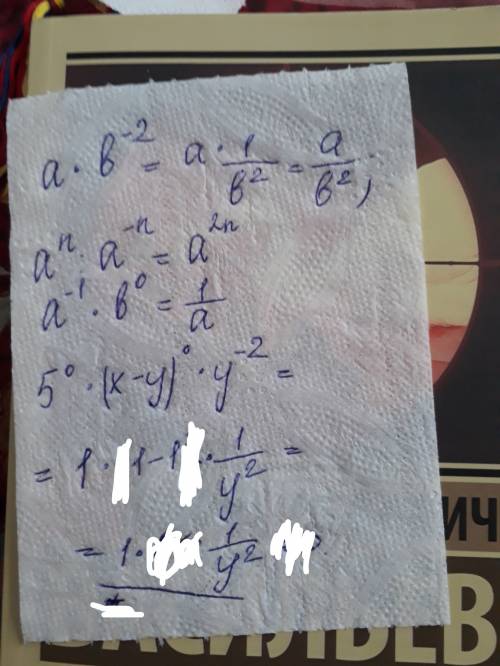 a · b⁻² = a · 1/b² = a/b²;
aⁿ · a⁻ⁿ = a²ⁿ
a⁻¹ · b⁰ = 1/a
5⁰ · (x-y)⁰ · y⁻² =
= 1 · 1-1 · 1/y² =
= 1 · 1/y²
ИЧ
ВАСИЛЬЕВ